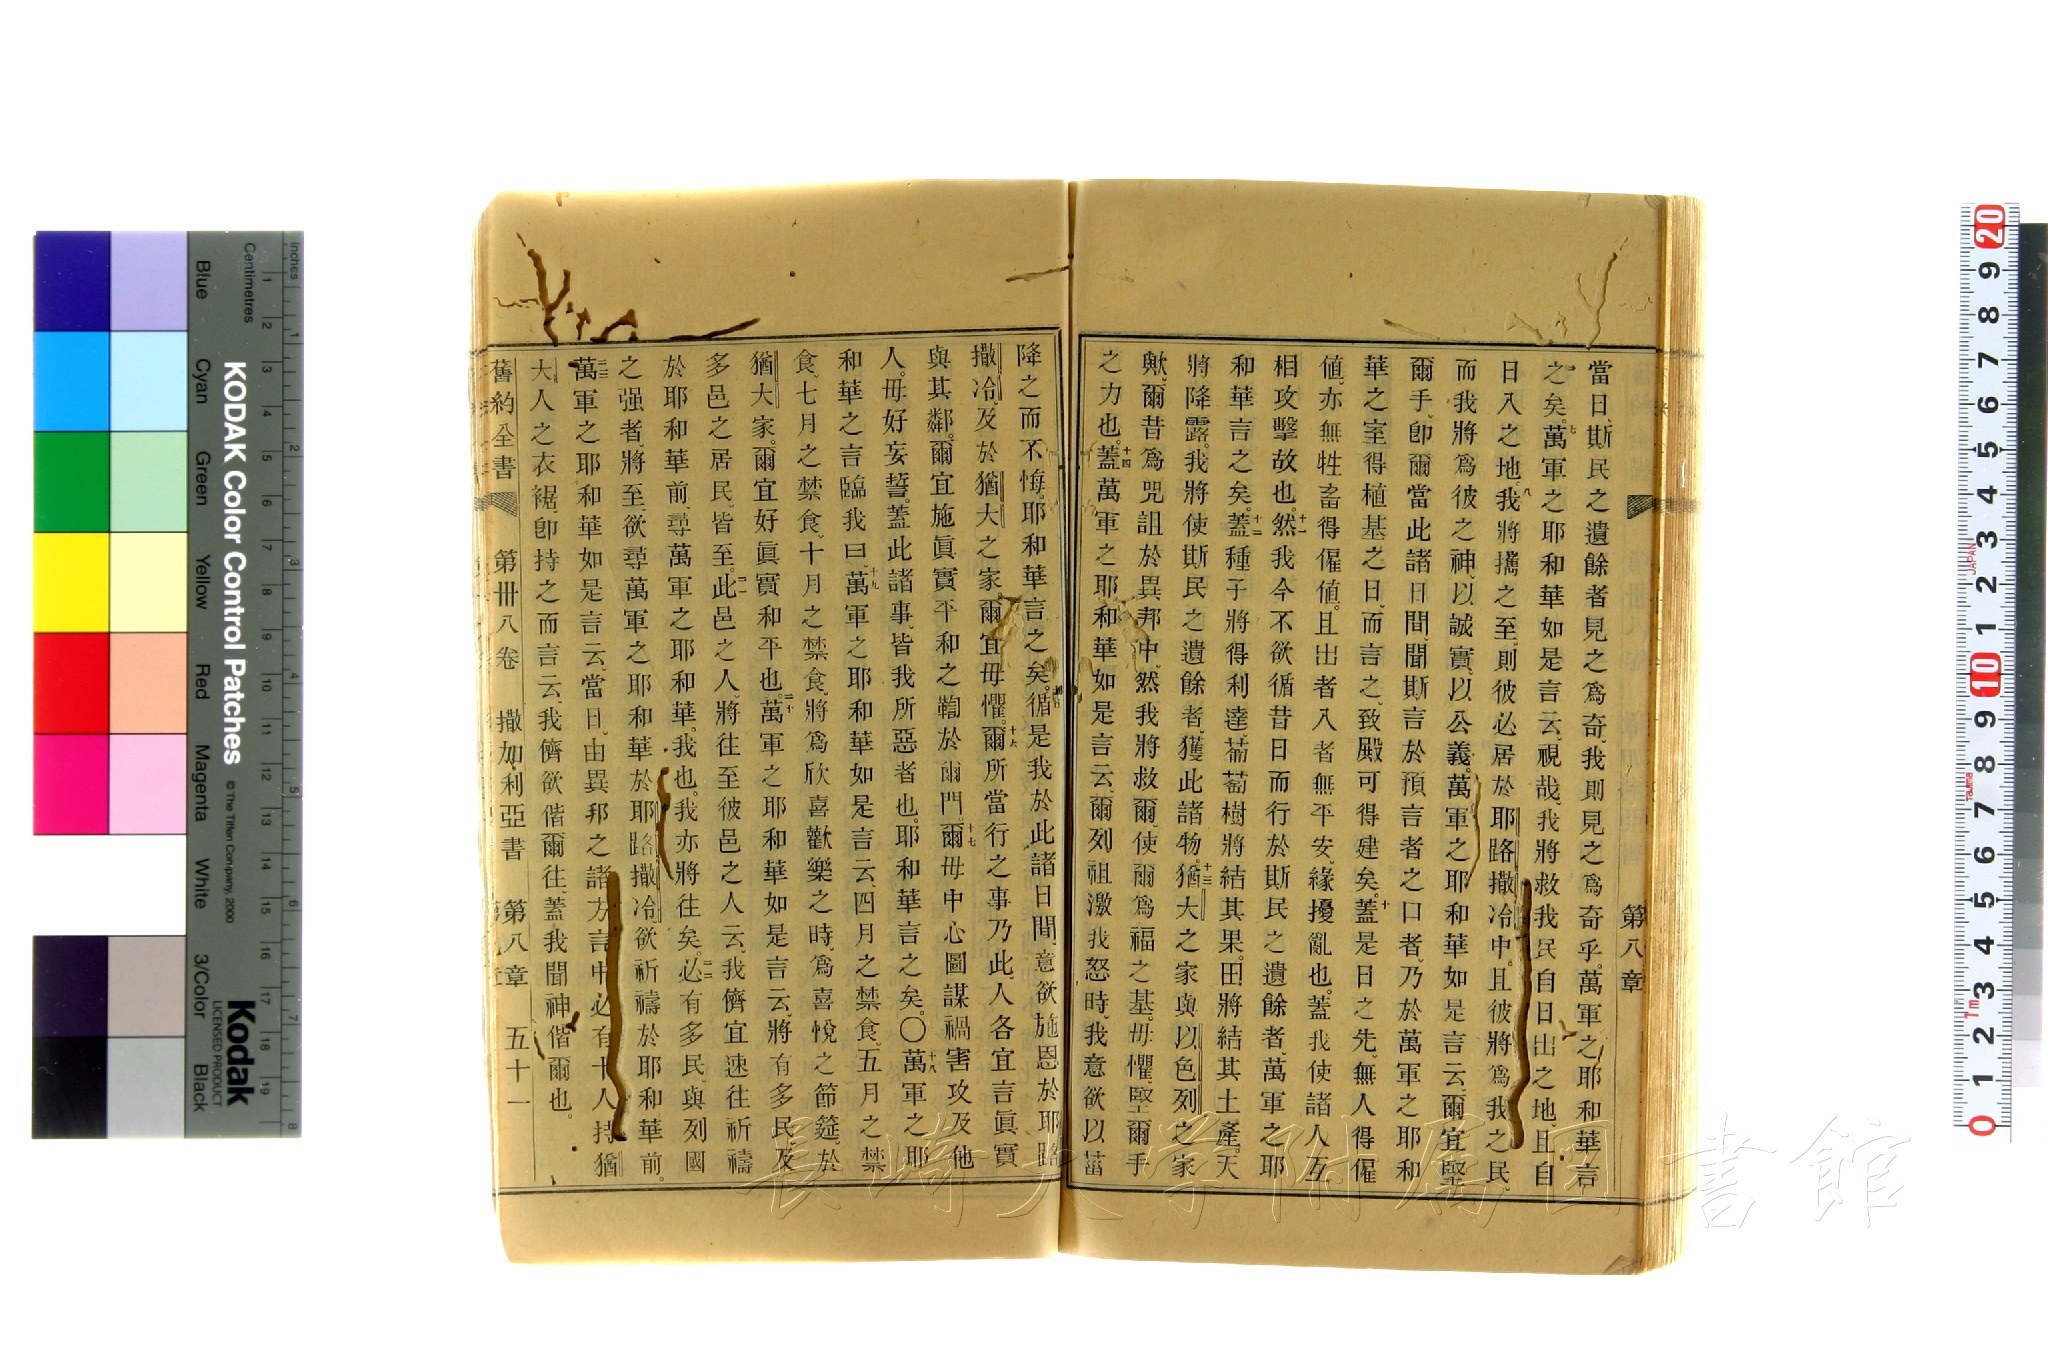 當日、斯民之遺餘者見之爲奇、我則見之爲奇乎。萬軍之耶和華言
之矣。七萬軍之耶和華如是言云、視哉、我將救我民自日出之地、且自
日入之地。八我將攜之至、則彼必居於耶路撒冷中。且彼將爲我之民、
而我將爲彼之神、以誠實、以公義。萬軍之耶和華如是言云、爾宜堅
爾手、卽爾當此諸日間、聞斯言於預言者之口者、乃於萬軍之耶和
華之室得植基之日、而言之、致殿可得建矣。十蓋是日之先、無人得僱
値、亦無牲畜得僱値。且出者入者無平安、緣擾亂也。蓋我使諸人互
相攻擊故也。十一然我今不欲循昔日而行於斯民之遺餘者、萬軍之耶
和華言之矣。十二蓋種子將得利達、葡萄樹將結其果。田將結其土產。天
將降露。我將使斯民之遺餘者、獲此諸物。十三猶大之家與以色列之家
歟、爾昔爲咒詛於異邦中、然我將救爾、使爾爲福之基。毋懼、堅爾手
之力也。十四蓋萬軍之耶和華如是言云、爾列祖激我怒時、我意欲以菑
第八章
降之而不悔。耶和華言之矣。循是我於此諸日間、意欲施恩於耶路
撒冷及於猶大之家、爾宜毋懼。十六爾所當行之事乃此、人各宜言眞實
與其鄰。爾宜施眞實平和之鞫於爾門。十七爾毋中心圖謀禍害攻及他
人。毋好妄誓。蓋此諸事、皆我所惡者也。耶和華言之矣。〇十八萬軍之耶
和華之言臨我曰、十九萬軍之耶和華如是言云、四月之禁食、五月之禁
食、七月之禁食、十月之禁食、將爲欣喜歡樂之時、爲喜悅之節筵、於
猶大家。爾宜好眞實和平也。二十萬軍之耶和華如是言云、將有多民、及
多邑之居民、皆至。二一此邑之人、將往至彼邑之人云、我儕宜速往祈禱
於耶和華前、尋萬軍之耶和華。我也。我亦將往矣。二二必有多民、與列國
之强者、將至、欲尋萬軍之耶和華於耶路撒冷、欲祈禱於耶和華前。
二三萬軍之耶和華如是言云、當日、由異邦之諸方言中、必有十人、持猶
大人之衣裾、卽持之而言云、我儕欲偕爾往、蓋我聞神偕爾也。
舊約全書 第卌八卷 撒加利亞書 第八章 五十一
長崎大学附属図書館
KODAK Color Control Patches
© The Tiffen Company, 2000
Kodak
LICENSED PRODUCT
Inches
Centimetres
Blue Cyan Green Yellow Red Magenta White 3/Color Black
1 2 3 4 5 6 7 8 9 10 11 12 13 14 15 16 17 18 19
1 2 3 4 5 6 7 8
20 9 8 7 6 5 4 3 2 1 10 9 8 7 6 5 4 3 2 1 0
JAPAN